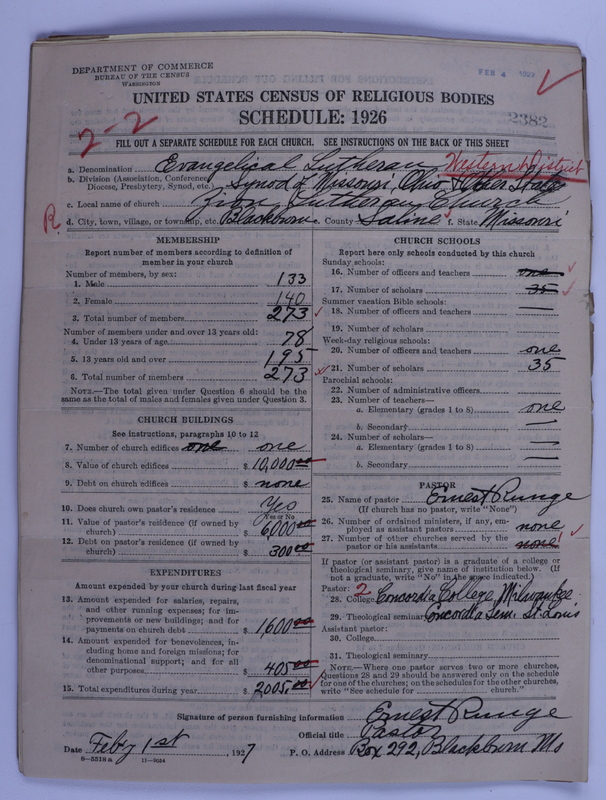 DEPARTMENT OF COMMERCE
BUREAU OF THE CENSUS
WASHINGTON
FEB 4
2382
UNITED STATES CENSUS OF RELIGIOUS BODIES
SCHEDULE: 1926
2-2
FILL OUT A SEPARATE SCHEDULE FOR EACH CHURCH. SEE INSTRUCTIONS ON THE BACK OF THIS SHEET
a. Denomination Evangelical Lutheran Western District
b. Division (Association, Conference, Diocese, Presbytery, Synod, etc.) Synod of Missouri, Ohio & Other States
c. Local name of church Zion Lutheran Church
R. d. City, town, village, or township, etc. Blackburn e. County Saline f. State Missouri
MEMBERSHIP
Report number of members according to definition of
member in your church
Number of members, by sex:
1. Male 133
2. Female 140
3. Total number of members 273
Number of members under and over 13 years old:
4. Under 13 years of age 78
5. 13 years old and over 195
6. Total number of members 273
NOTE.—The total given under Question 6 should be the
same as the total of males and females given under Question 3.
CHURCH BUILDINGS
See instructions, paragraphs 10 to 12
7. Number of church edifices one one
8. Value of church edifices $ 10,000.00
9. Debt on church edifices $ none
10. Does church own pastor's residence? Yes
Yes or No
11. Value of pastor's residence (if owned by
church) $ 6000.00
12. Debt on pastor's residence (if owned by
church) $ 300.00
EXPENDITURES
Amount expended by your church during last fiscal year
13. Amount expended for salaries, repairs,
and other running expenses; for im-
provements or new buildings; and for
payments on church debt $ 1,600.00
14. Amount expended for benevolences, in-
cluding home and foreign missions; for
denominational support; and for all
other purposes $ 405.00
15. Total expenditures during year $ 2005.00
CHURCH SCHOOLS
Report here only schools conducted by this church
Sunday schools:
16. Number of officers and teachers one
17. Number of scholars 35
Summer vacation Bible schools:
18. Number of officers and teachers —
19. Number of scholars
Week-day religious schools:
20. Number of officers and teachers one
21. Number of scholars 35
Parochial schools:
22. Number of administrative officers
23. Number of teachers—
a. Elementary (grades 1 to 8) one
b. Secondary —
24. Number of scholars—
a. Elementary (grades 1 to 8) —
b. Secondary —
PASTOR
25. Name of pastor Ernest Runge
(If church has no pastor, write "None")
26. Number of ordained ministers, if any, em-
ployed as assistant pastors none
27. Number of other churches served by the
pastor or his assistants none 1
If pastor (or assistant pastor) is a graduate of a college or
theological seminary, give name of institution below. (If
not a graduate, write "No" in the space indicated.)
Pastor: 2
28. College Concordia College, Milwaukee
29. Theological seminary Concordia Sem. St. Louis
Assistant pastor:
30. College
31. Theological seminary
NOTE.—Where one pastor serves two or more churches,
Questions 28 and 29 should be answered only on the schedule
for one of the churches; on the schedules for the other churches,
write "See schedule for church."
Signature of person furnishing information Ernest Runge
Official title Pastor
Date Feby 1st, 1927 P. O. Address Box 292, Blackburn Mo
8—5318a 11—9584